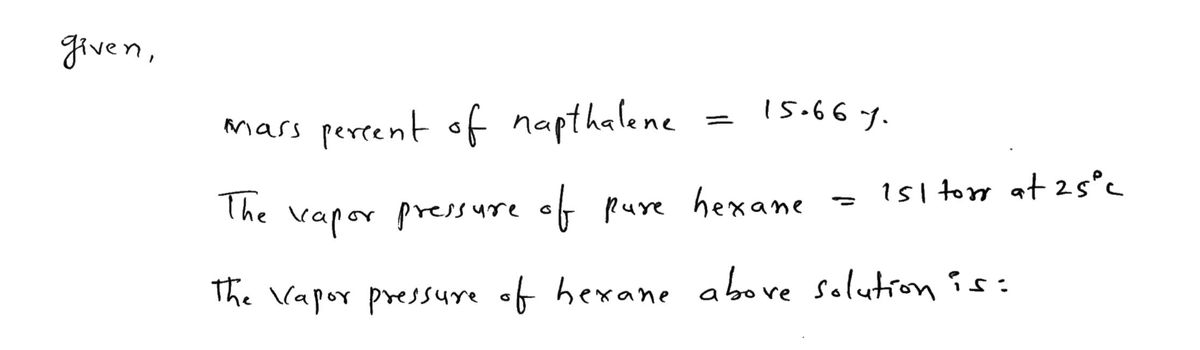 given,
mass percent of napthalene = 15.66 %.
The vapor pressure of pure hexane = 151 torr at 25°c
The vapor pressure of hexane above solution is: